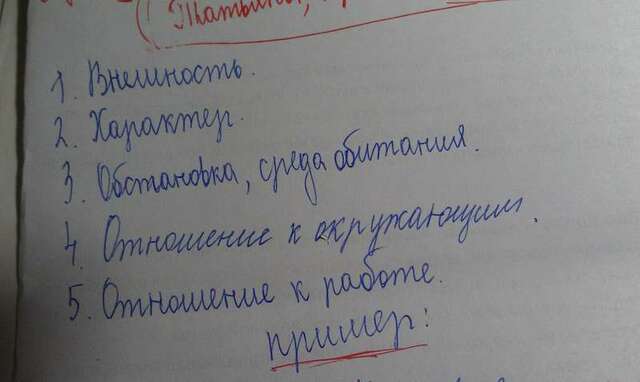 Татьяны,
1. Внешность.
2. Характер.
3. Обстановка, среда обитания.
4. Отношение к окружающим.
5. Отношение к работе.
пример: